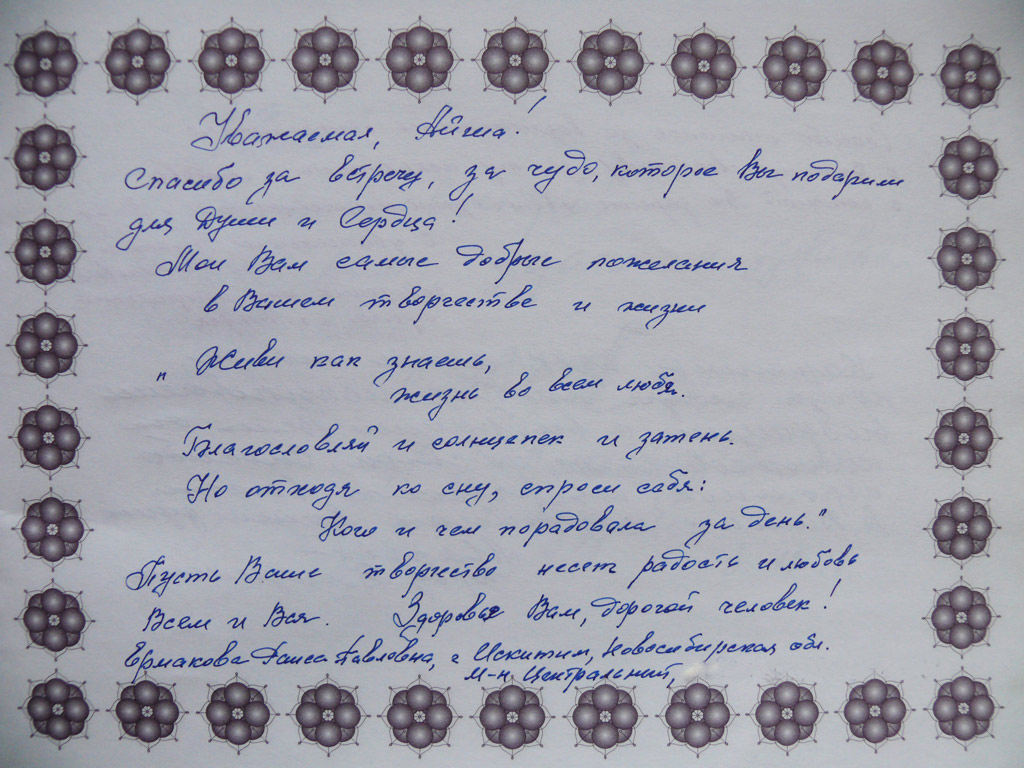 Уважаемая, Айгша!
Спасибо за встречу, за чудо, которое Вы подарили
для Души и Сердца!
Мои Вам самые добрые пожелания
в Вашем творчестве и жизни
" Живи как знаешь,
жизнь во всем любя.
Благословляй и солнцепек и затень.
Но отходя ко сну, спроси себя:
Кого и чем порадовала за день."
Пусть Ваше творчество несет радость и любовь
Всем и Вся. Здоровья Вам, дорогой человек!
Ермакова Раиса Павловна, г. Искитим, Новосибирская обл.
м-н Центральный,